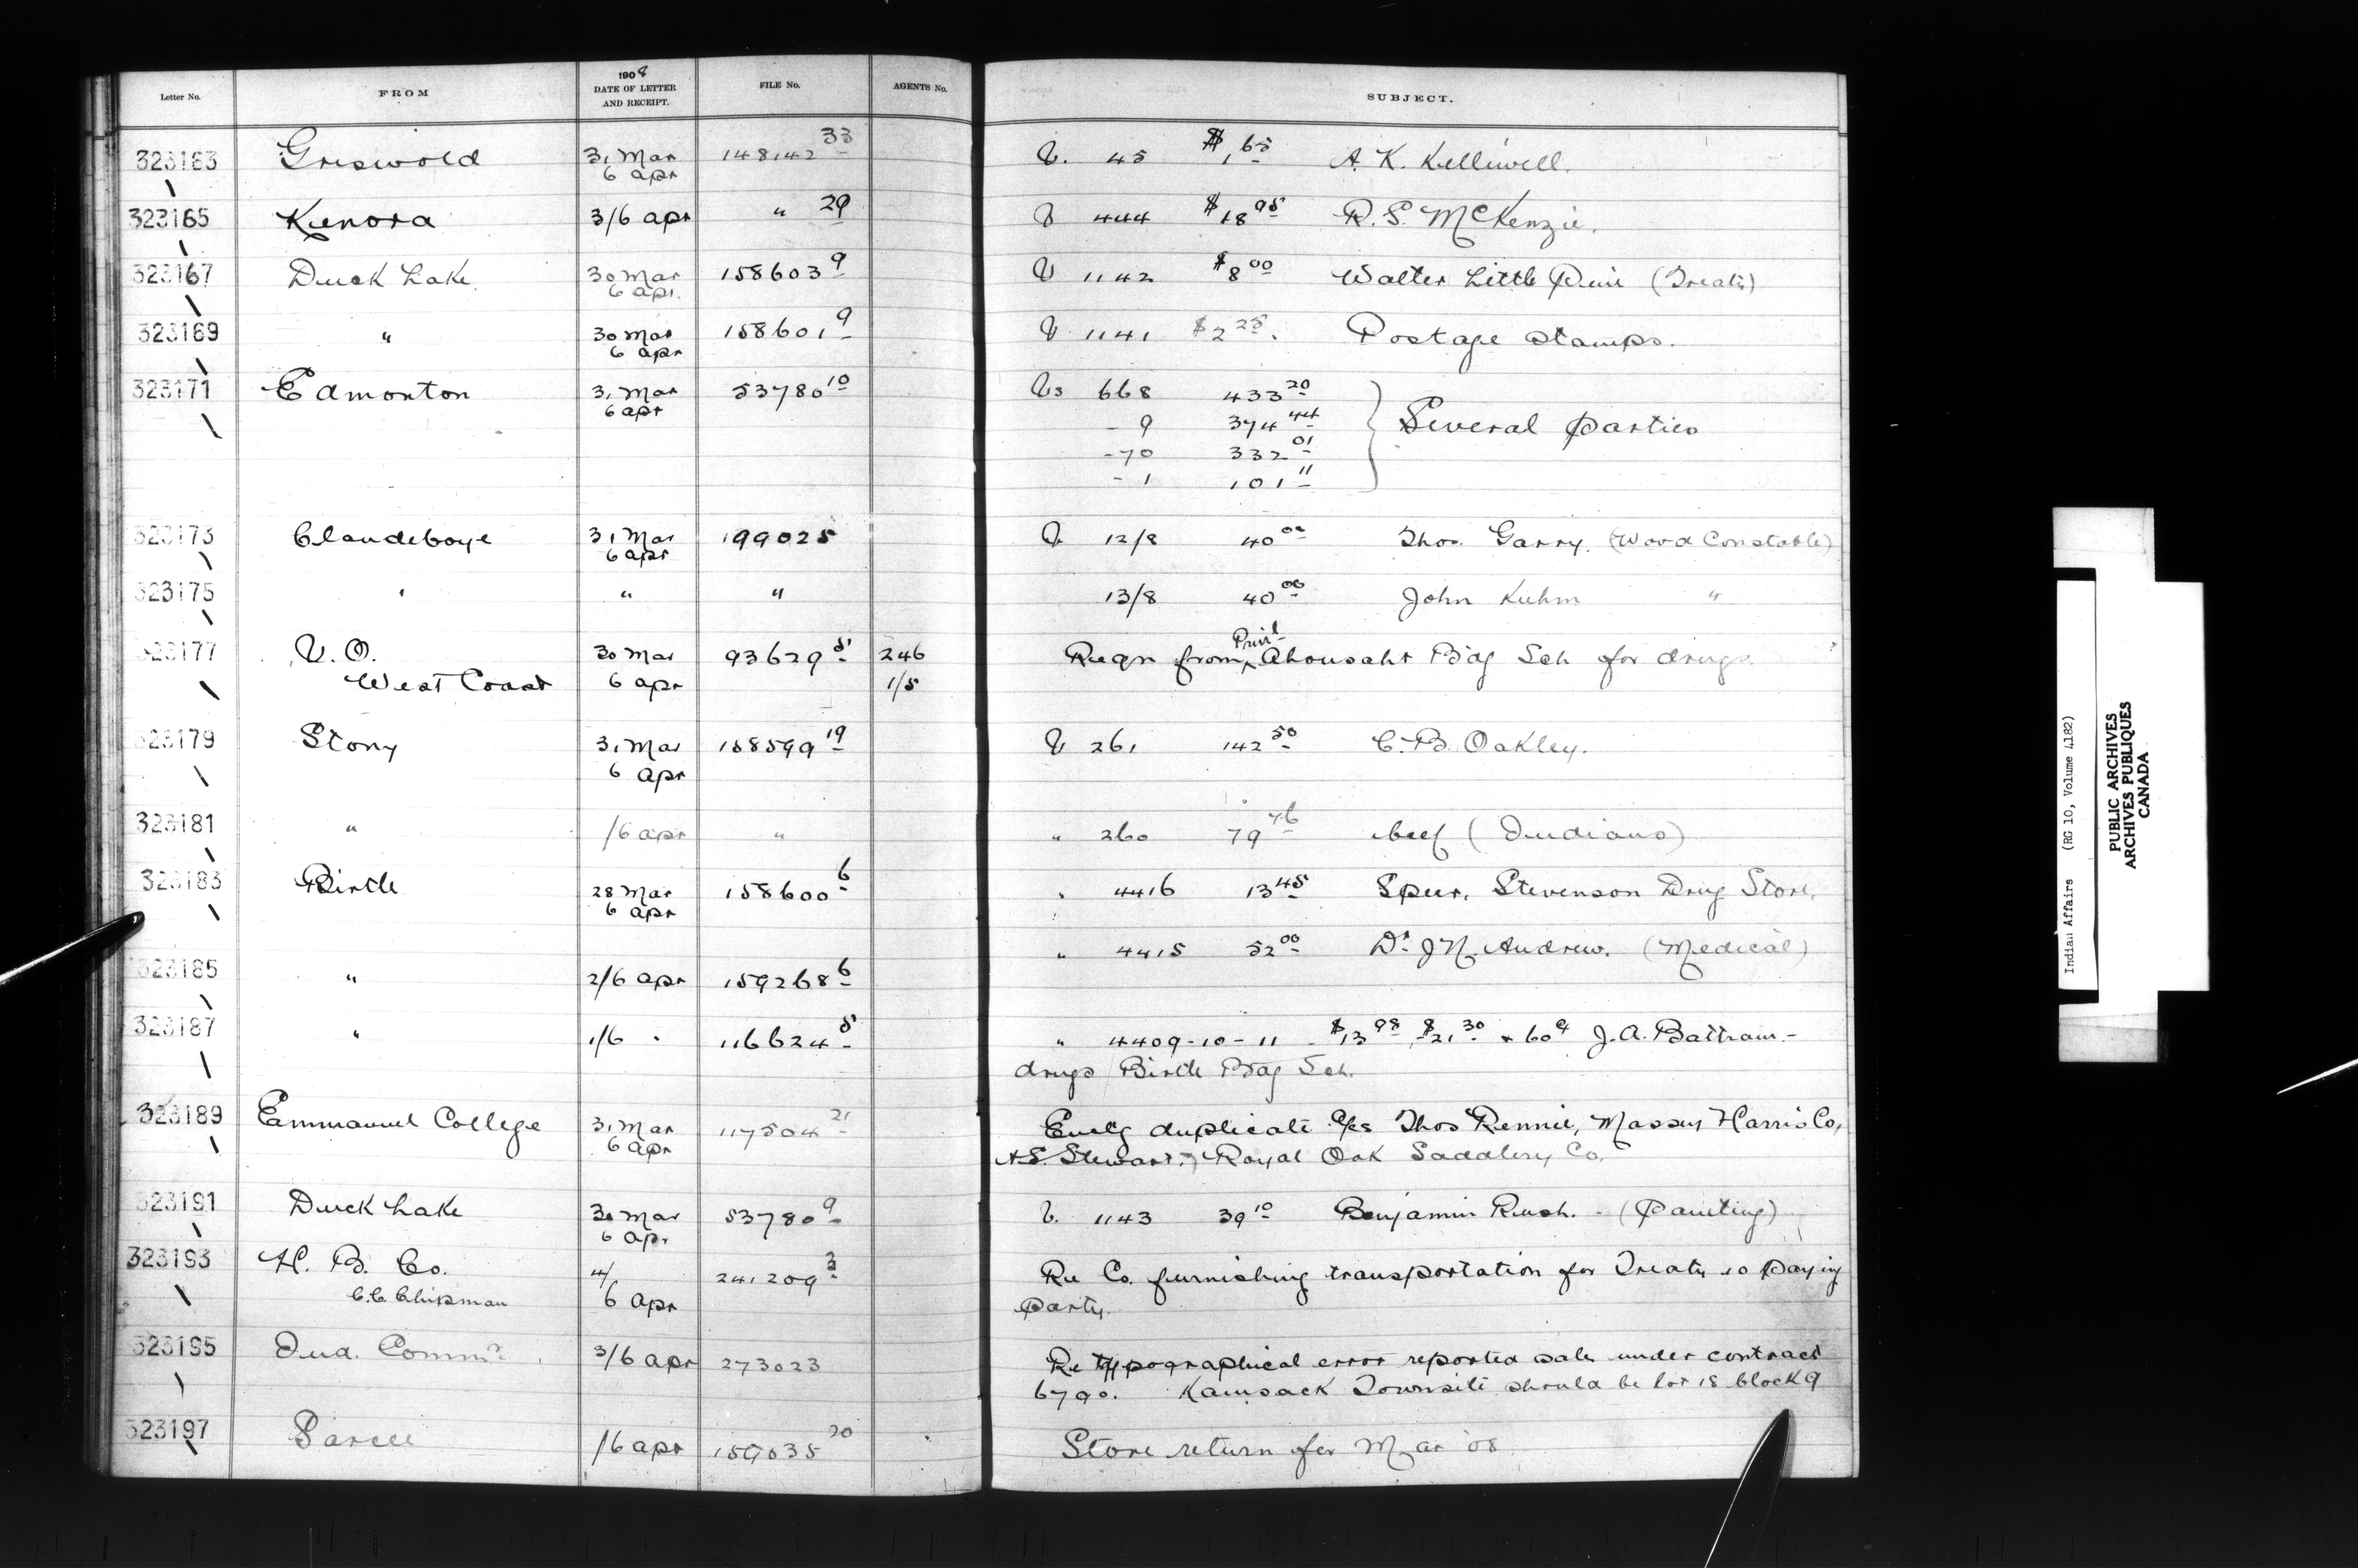 Letter No. FROM 1908 DATE OF LETTER AND RECEIPT. FILE No. AGENTS No. SUBJECT.
323163 Griswold 31 Mar 6 apr 148142 33 V. 45 $1.65 A. K. Kelliwell.
323165 Kenora 3/6 apr " 29 V 444 $18 95 R. S. McKenzie.
323167 Duck Lake 30 Mar 6 apr. 158603 9 V 1142 $8 00 Walter Little Pine (Treaty)
323169 " 30 Mar 6 apr 158601 9 V 1141 $2 25. Postage stamps.
323171 Edmonton 31 Mar 6 apr 53780 10 Vs 668 433 20
- 9 374 44 Several parties
- 70 332 01
- 1 101 11
323173 Clandeboye 31 Mar 6 apr 199025 V 12/8 40 00 Thos. Garry. (Wood Constable)
323175 " " " 13/8 40 00 John Kuhm "
323177 V. O. 30 Mar 93629 5 246 Reqn from Prinl Ahousaht Bdg Sch for drugs.
West Coast 6 apr 1/5
323179 Stony 31 Mar 6 apr 158599 19 V 261 142 50 C. B. Oakley.
323181 " /6 apr " " 260 79 76 beef (Indians)
323183 Birtle 28 Mar 6 apr 158600 6 " 4416 13 45 Speer, Stevenson Drug Store.
323185 " 2/6 apr 159268 6 " 4415 52 00 Dr. J N. Andrew. (Medical)
323187 " 1/6 " 116624 5 " 4409-10-11 - $13 98, $21 30 + 60¢ J. A. Battram -
drugs Birtle Bdg Sch.
323189 Emmanuel College 31 Mar 6 apr 117504 21 Enclg duplicate a/cs Thos Rennie, Massey Harris Co,
A. S. Stewart, Royal Oak Saddlery Co.
323191 Duck Lake 30 Mar 6 apr 53780 9 V. 1143 39 10 Benjamin Rush. - (Painting)
323193 H. B. Co. 4/ 241209 3 Re Co. furnishing transportation for Treaty 10 paying
C.C. Chipman 6 apr party.
323195 Ind. Commr. 3/6 apr 273023 Re typographical error reported sale under contract
6790. Kamsack Townsite should be lot 18 block 9
323197 Sarcee /6 apr 159035 20 Store return for Mar '08
Indian Affairs (RG 10, Volume 4182)
PUBLIC ARCHIVES
ARCHIVES PUBLIQUES
CANADA